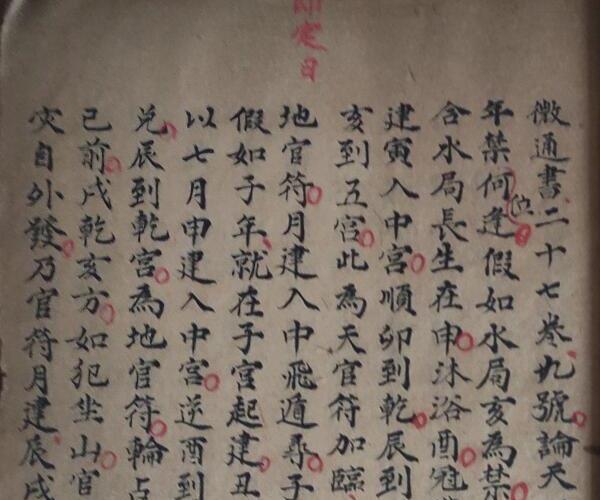 即定日
微通書二十七卷九號論天
年禁何逢假如水局亥為禁
位
含水局長生在申沐浴酉冠
建寅入中宮順卯到乾辰到
亥到五宮此為天官符加臨
地官符月建入中飛遁尋子
假如子年就在子宮起建丑
以七月申建入中宮逆酉到
兌辰到乾宮為地官符輪占
已前戌乾亥方如犯坐山官
灾自外發乃官符月建辰戌